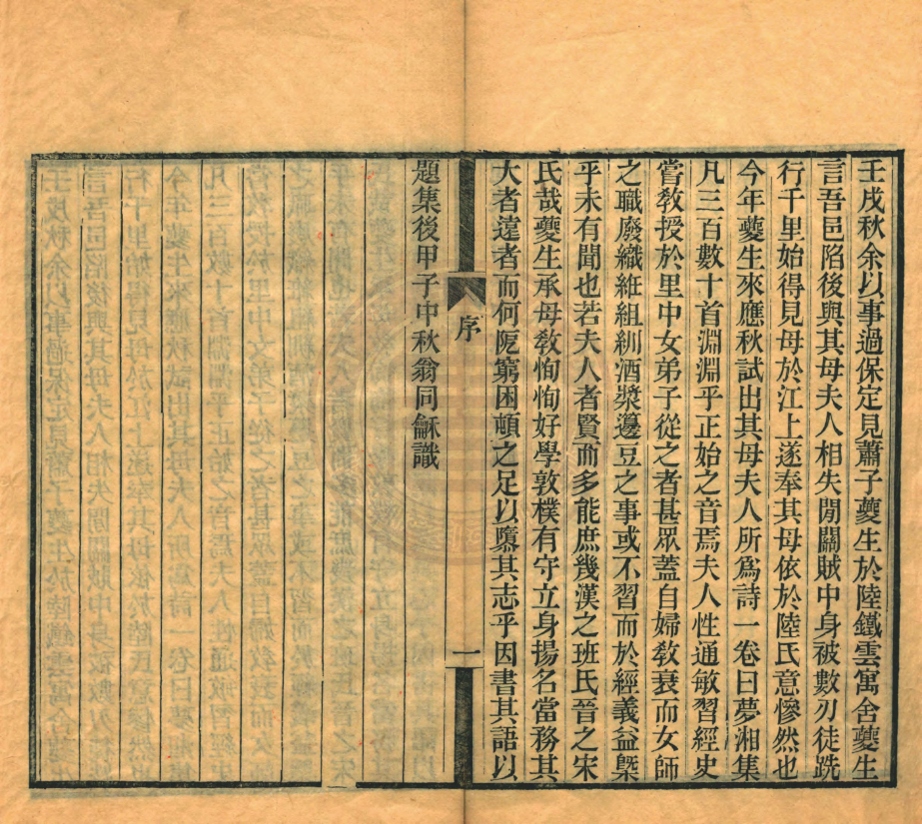 壬戌秋余以事過保定見蕭子夔生於陸鐵雲寓舍夔生
言吾邑陷後與其母夫人相失閒關賊中身被數刃徒跣
行千里始得見母於江上遂奉其母依於陸氏意慘然也
今年夔生來應秋試出其母夫人所爲詩一卷曰夢湘集
凡三百數十首淵淵乎正始之音焉夫人性通敏習經史
嘗教授於里中女弟子從之者甚眾蓋自婦教衰而女師
之職廢織絍組紃酒漿籩豆之事或不習而於經義益槩
乎未有聞也若夫人者賢而多能庶幾漢之班氏晉之宋
氏哉夔生承母教恂恂好學敦樸有守立身揚名當務其
大者遠者而何阨窮困頓之足以隳其志乎因書其語以
題集後甲子中秋翁同龢識
序
一